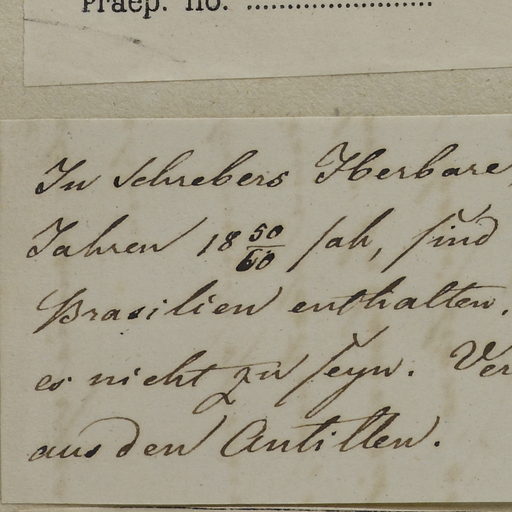 Praep. no. ........................
In Schrebers Herbare,
Jahren 18 50/60 sah, sind
Brasilien enthalten.
es nicht zu seyn. Ver
aus den Antillen.